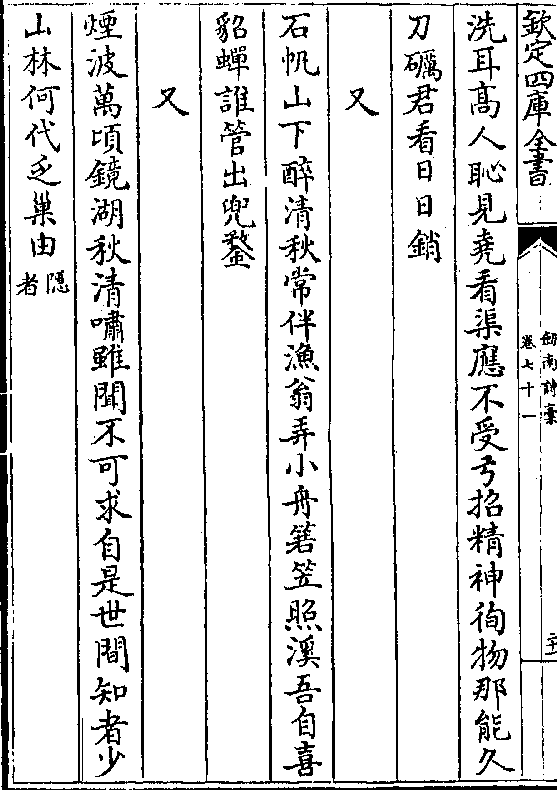 欽定四庫全書
劍南詩稾
卷七十一
洗耳高人恥見堯看渠應不受弓招精神徇物那能久
刀礪君看日日銷
又
石帆山下醉清秋常伴漁翁弄小舟篛笠照溪吾自喜
貂蟬誰管出兜鍪
又
煙波萬頃鏡湖秋清嘯雖聞不可求自是世間知者少
山林何代乏巢由隱者